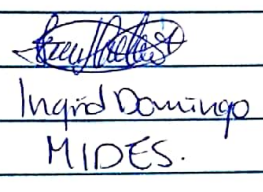 Ingrid Domingo
MIDES.